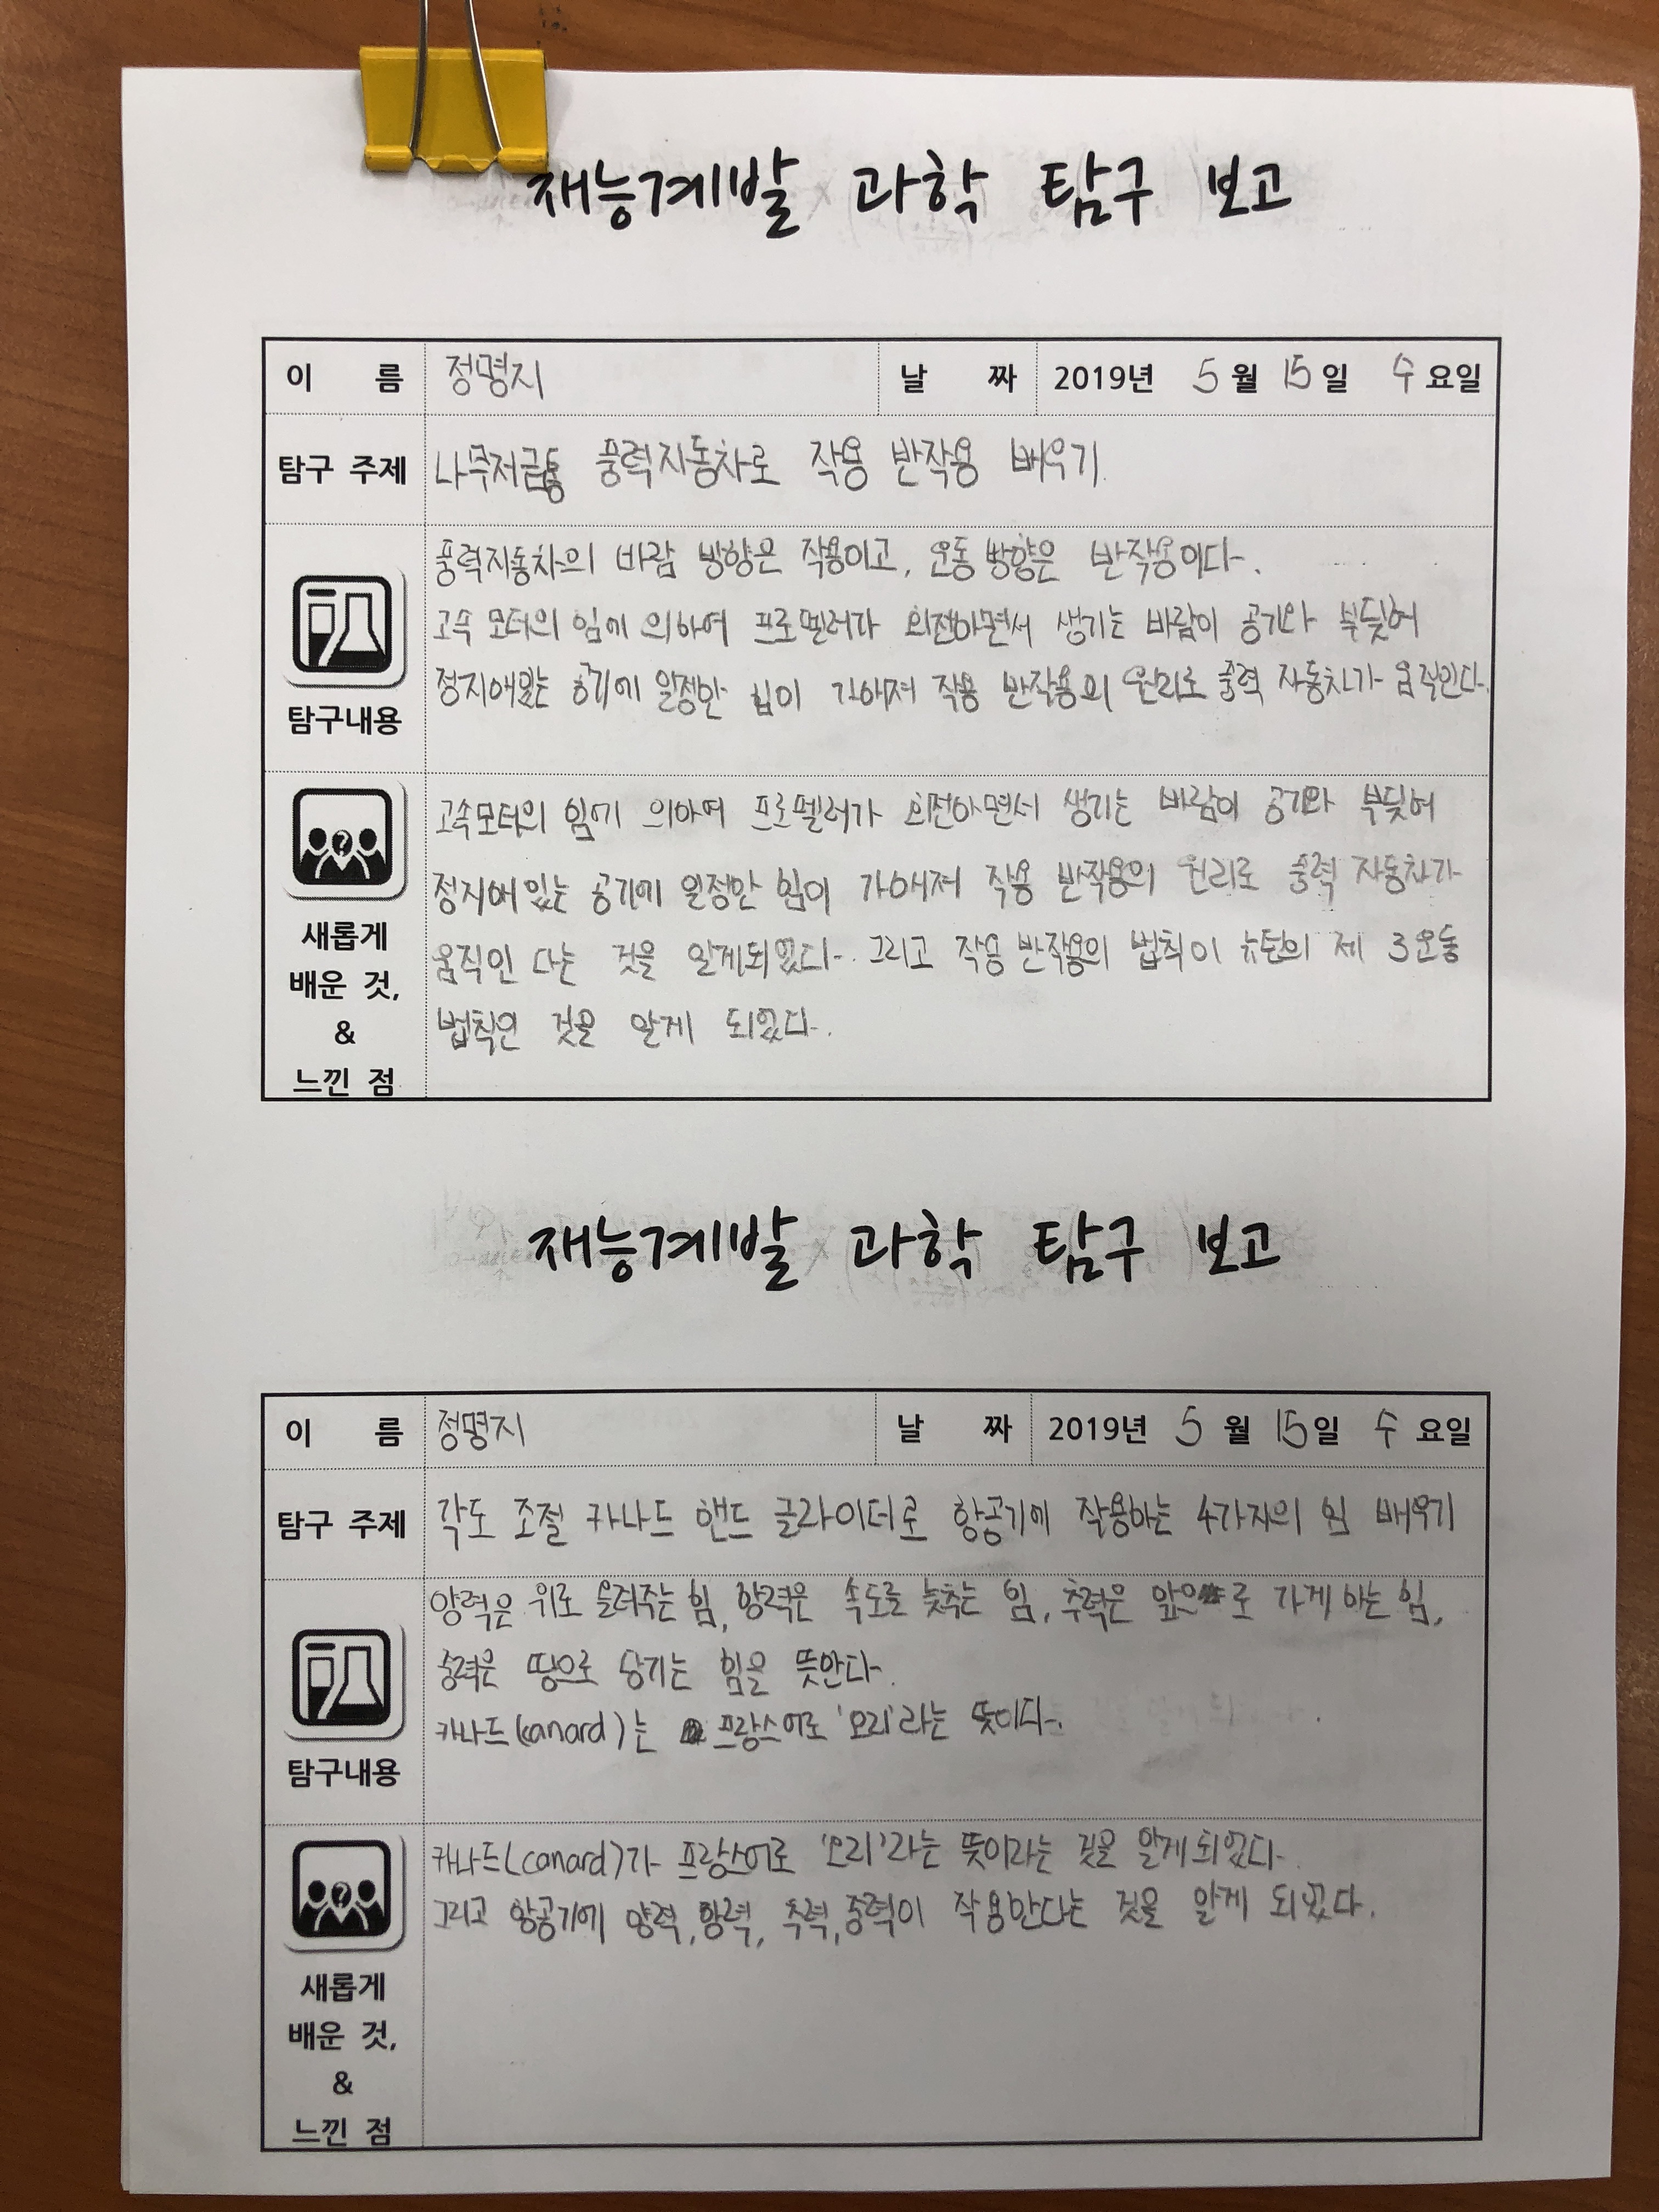 재능계발 과학 탐구 보고
이 름 정명지 날 짜 2019년 5월 15일 수요일
탐구 주제 나무저금통 풍력자동차로 작용 반작용 배우기
풍력자동차의 바람 방향은 작용이고, 운동 방향은 반작용이다.
고속 모터의 힘에 의하여 프로펠러가 회전하면서 생기는 바람이 공기와 부딪혀
정지해있는 공기에 일정한 힘이 가해져 작용 반작용의 원리로 풍력 자동차가 움직인다.
탐구내용
고속모터의 힘에 의하여 프로펠러가 회전하면서 생기는 바람이 공기와 부딪혀
정지해 있는 공기에 일정한 힘이 가해져 작용 반작용의 원리로 풍력 자동차가
움직인 다는 것을 알게되었다. 그리고 작용 반작용의 법칙이 뉴턴의 제 3운동
법칙인 것을 알게 되었다.
새롭게
배운 것,
&
느낀 점
재능계발 과학 탐구 보고
이 름 정명지 날 짜 2019년 5월 15일 수요일
탐구 주제 각도 조절 카나드 핸드 글라이더로 항공기에 작용하는 4가지의 힘 배우기
양력은 위로 올려주는 힘, 항력은 속도를 늦추는 힘, 추력은 앞으로 가게 하는 힘,
중력은 땅으로 당기는 힘을 뜻한다.
카나드(canard)는 프랑스어로 '오리'라는 뜻이다.
탐구내용
카나드(canard)가 프랑스어로 '오리'라는 뜻이라는 것을 알게되었다.
그리고 항공기에 양력, 항력, 추력, 중력이 작용한다는 것을 알게 되었다.
새롭게
배운 것,
&
느낀 점